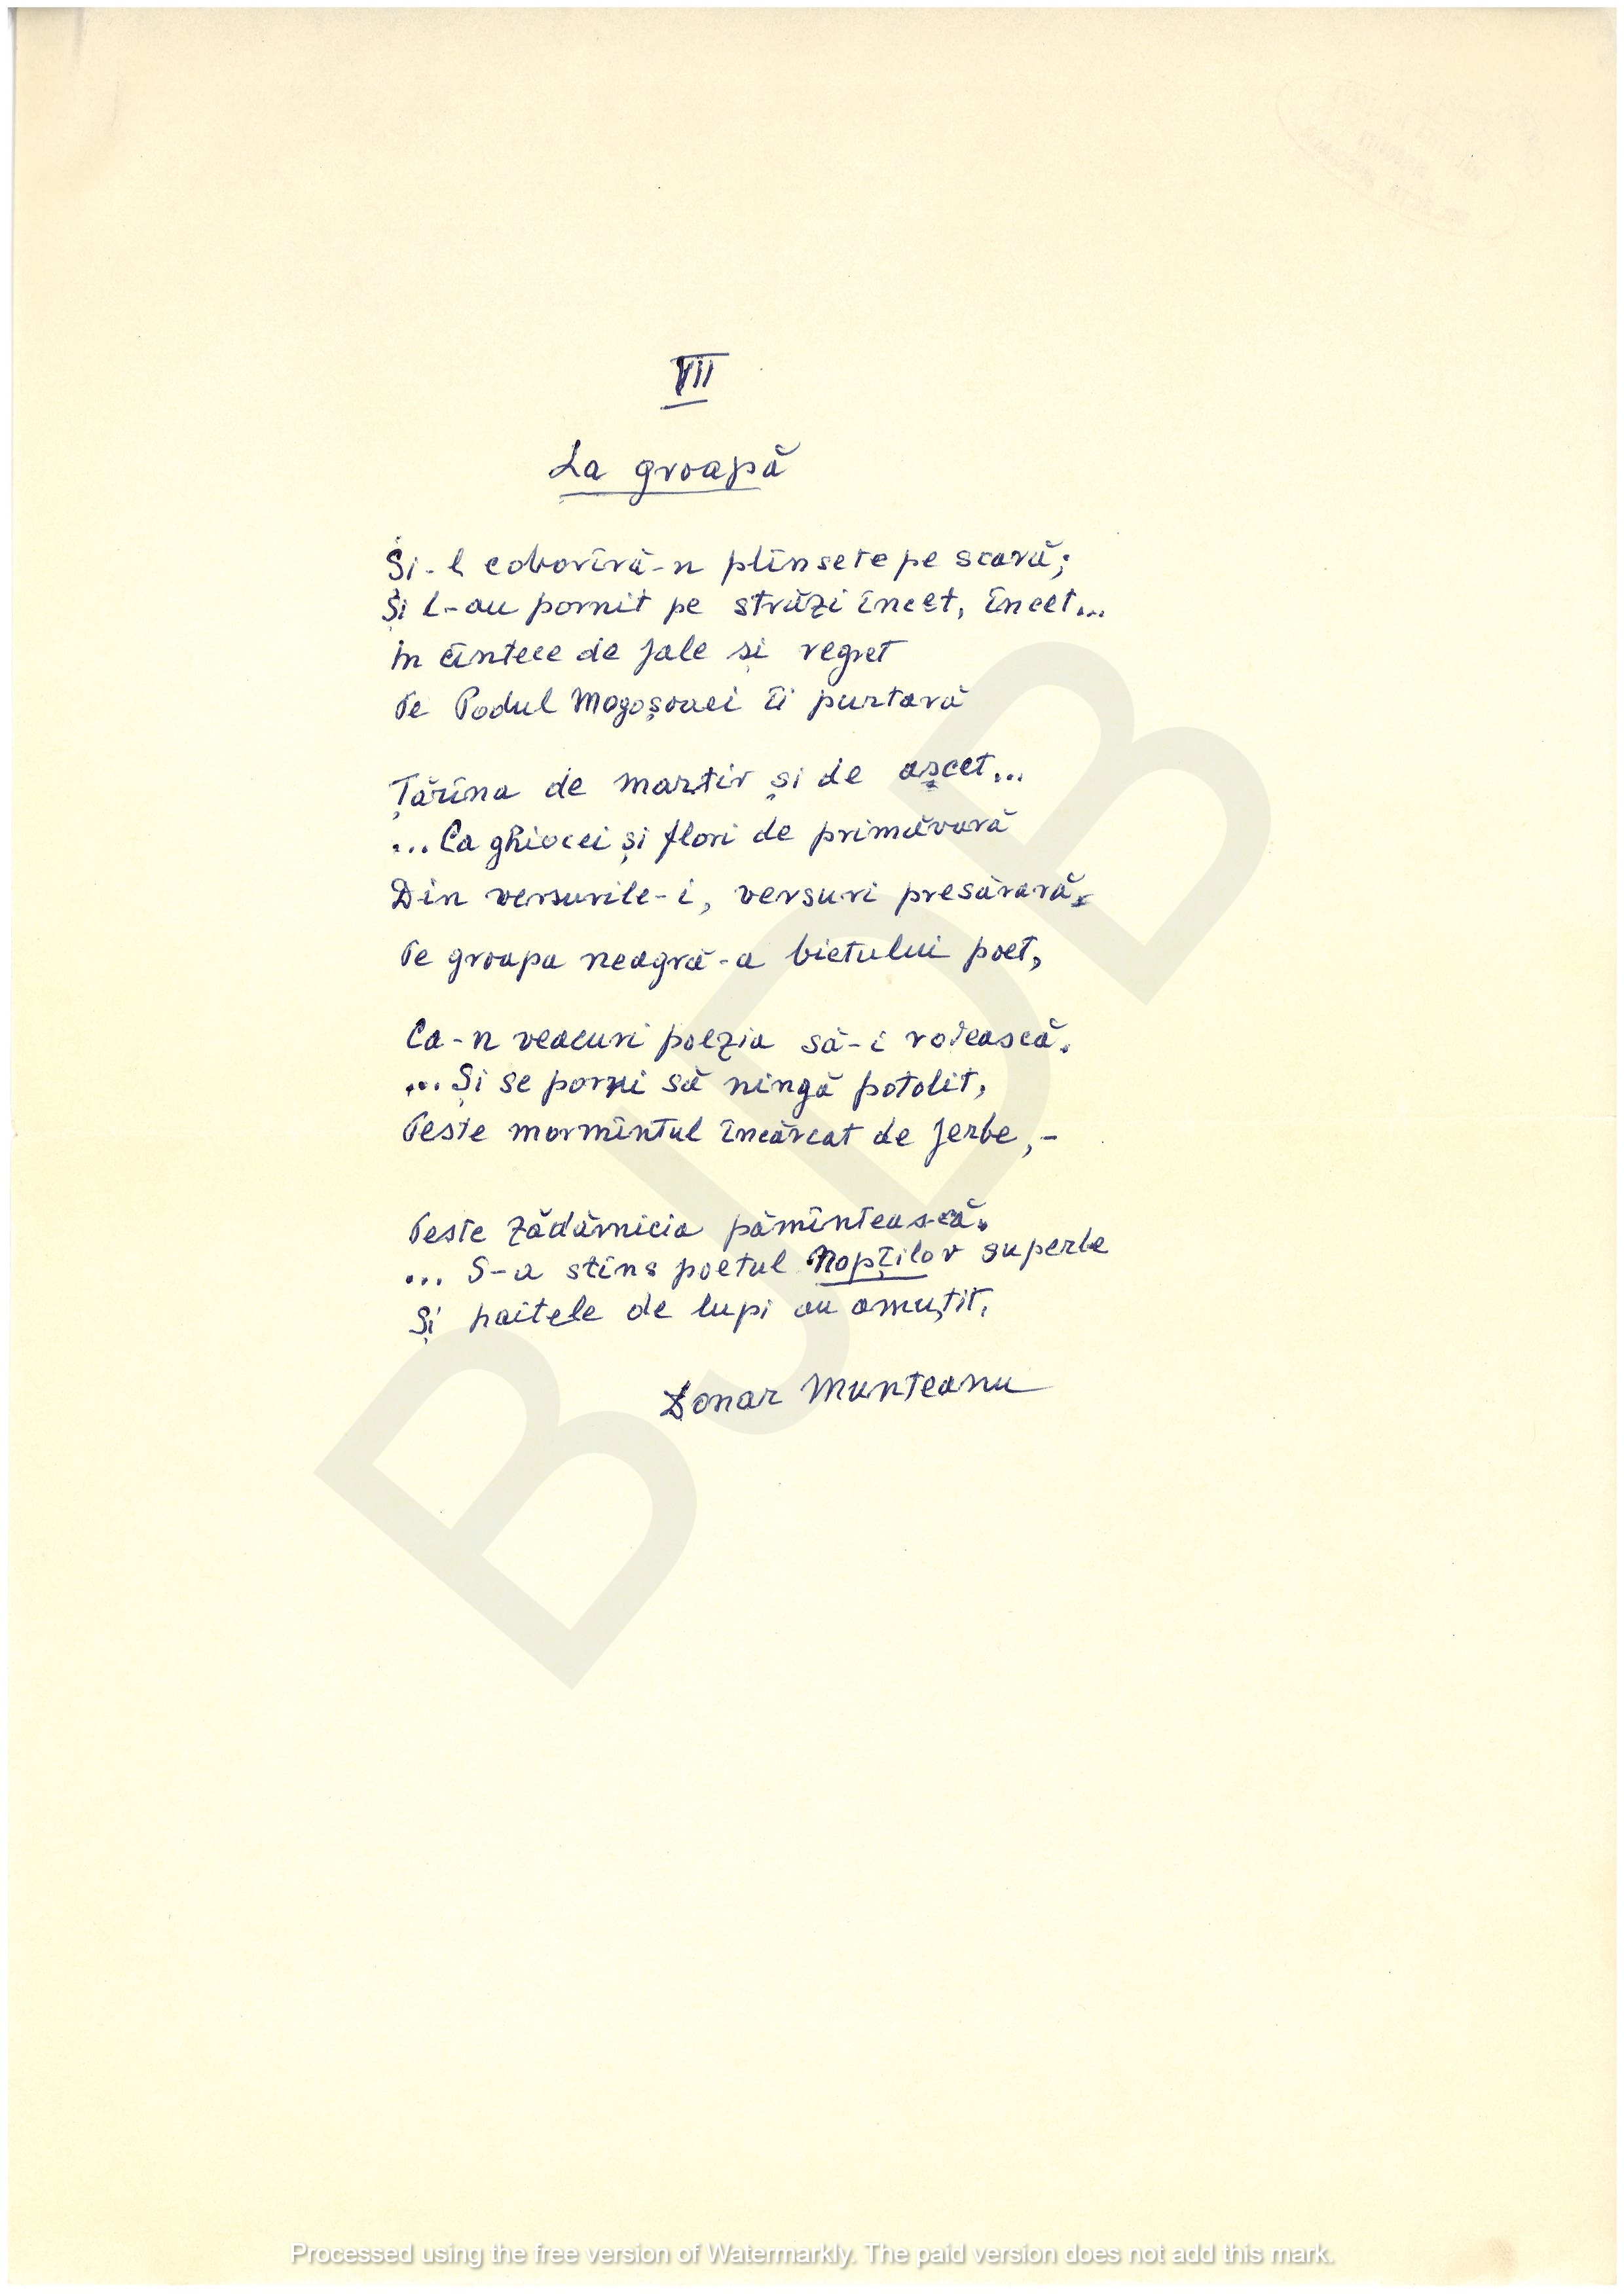 VII
La groapă
Și-l coborîră-n plînsete pe scară;
Și l-au pornit pe străzi încet, încet...
În cîntece de jale și regret
Pe Podul Mogoșoaei îi purtară
Țărîna de martir și de ascet...
...Ca ghiocei și flori de primăvară
Din versurile-i, versuri presărară,
Pe groapa neagră-a bietului poet,
Ca-n veacuri poezia să-i rodească.
... Și se porni să ningă potolit,
Peste mormîntul încărcat de jerbe,-
Peste zădărnicia pămîntească.
... S-a stins poetul Nopților superbe
Și haitele de lupi au amuțit.
Donar Munteanu
BJDB
Processed using the free version of Watermarkly. The paid version does not add this mark.